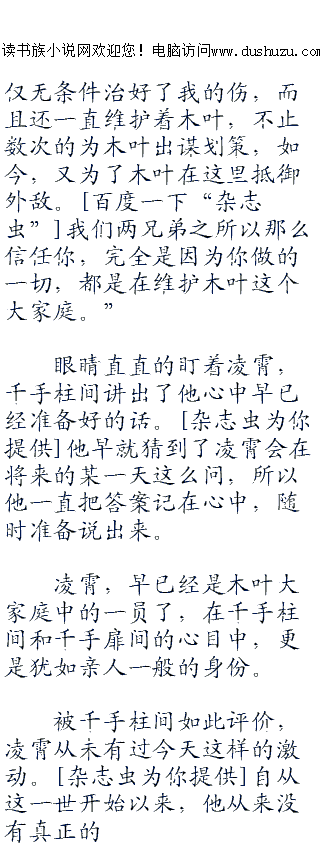 读书族小说网欢迎您！电脑访问www.dushuzu.com
仅无条件治好了我的伤，而
且还一直维护着木叶，不止
数次的为木叶出谋划策，如
今，又为了木叶在这里抵御
外敌。[百度一下“杂志
虫”]我们两兄弟之所以那么
信任你，完全是因为你做的
一切，都是在维护木叶这个
大家庭。”
眼睛直直的盯着凌霄，
千手柱间讲出了他心中早已
经准备好的话。[杂志虫为你
提供]他早就猜到了凌霄会在
将来的某一天这么问，所以
他一直把答案记在心中，随
时准备说出来。
凌霄，早已经是木叶大
家庭中的一员了，在千手柱
间和千手扉间的心目中，更
是犹如亲人一般的身份。
被千手柱间如此评价，
凌霄从未有过今天这样的激
动。[杂志虫为你提供]自从
这一世开始以来，他从来没
有真正的